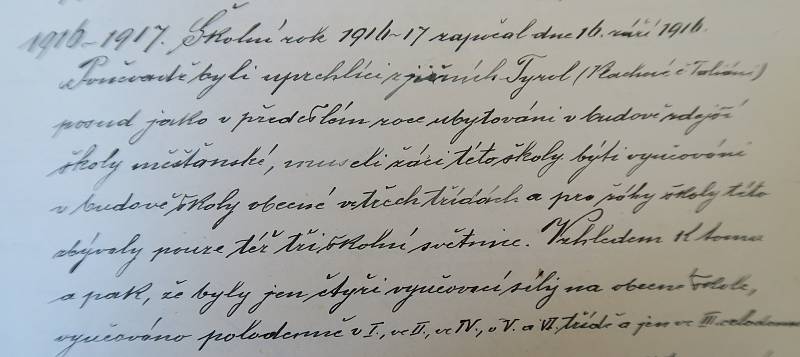 1916-1917. Školní rok 1916-17 započal dne 16. září 1916.
Poněvadž byli uprchlíci z jižních Tyrol (
posud jako v předešlém roce ubytováni v budově zdejší
školy měšťanské, museli žáci této školy býti vyučováni
v budově školy obecné ve třech třídách a pro žáky školy této
zbývaly pouze též tři školní světnice. Vzhledem k tomu
a pak, že byly jen čtyři vyučovací síly na obecné škole,
vyučováno polodenně v I., ve II., ve IV., v V. a VI. třídě a jen ve III. celodenně